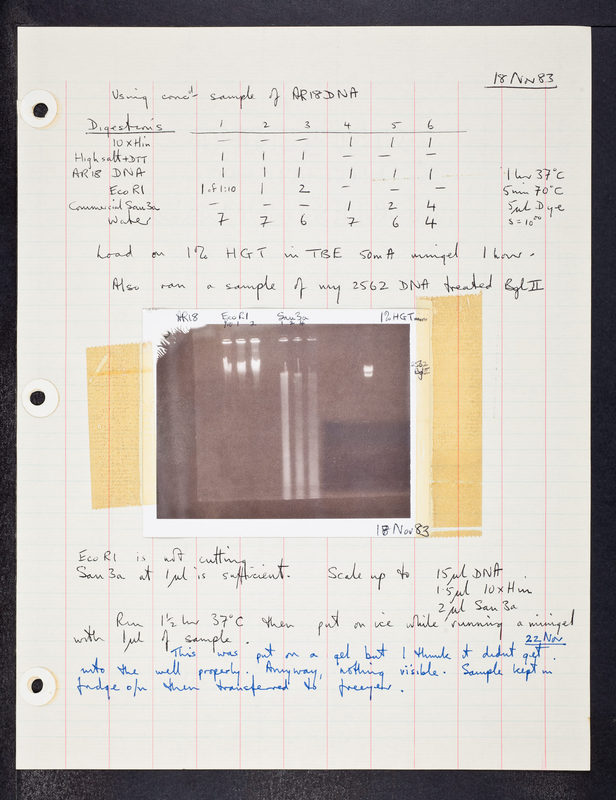 18 Nov 83
Using conc^d sample of AR18 DNA
Digestions 1 2 3 4 5 6
10 x Hin — — — 1 1 1
High salt + DTT 1 1 1 — — —
AR18 DNA 1 1 1 1 1 1 1 hr 37°C
EcoR1 1 of 1:10 1 2 — — — 5 min 70°C
Commercial Sau3a — — — 1 2 4 5μl Dye
Water 7 7 6 7 6 4
Load on 1% HGT in TBE 50mA minigel 1 hour.
Also ran a sample of my 2562 DNA treated Bgl II
AR18 EcoR1 Sau3a 1% HGT
2562
Bgl II
18 Nov 83
EcoR1 is not cutting
Sau3a at 1μl is sufficient. Scale up to 15μl DNA
1.5μl 10 x Hin
2μl Sau3a
Run 1½ hr 37°C then put on ice while running a minigel
with 1μl of sample.
22 Nov
This was put on a gel but I think it didnt get
into the well properly. Anyway, nothing visible. Sample kept in
fridge o/n then transferred to freezer.